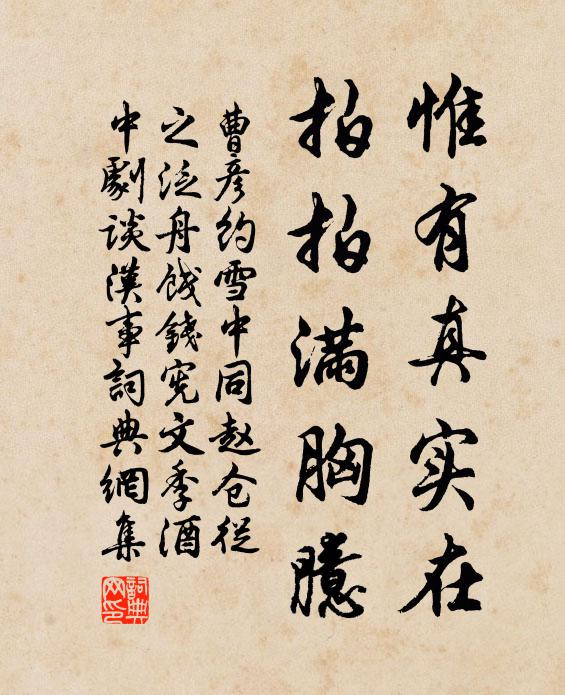 惟有真实在
拍拍满胸臆
曹彦约雪中同赵仓従
之泛舟饯钱宪文季酒
中劇谈漢事詞典網集
詞典网印